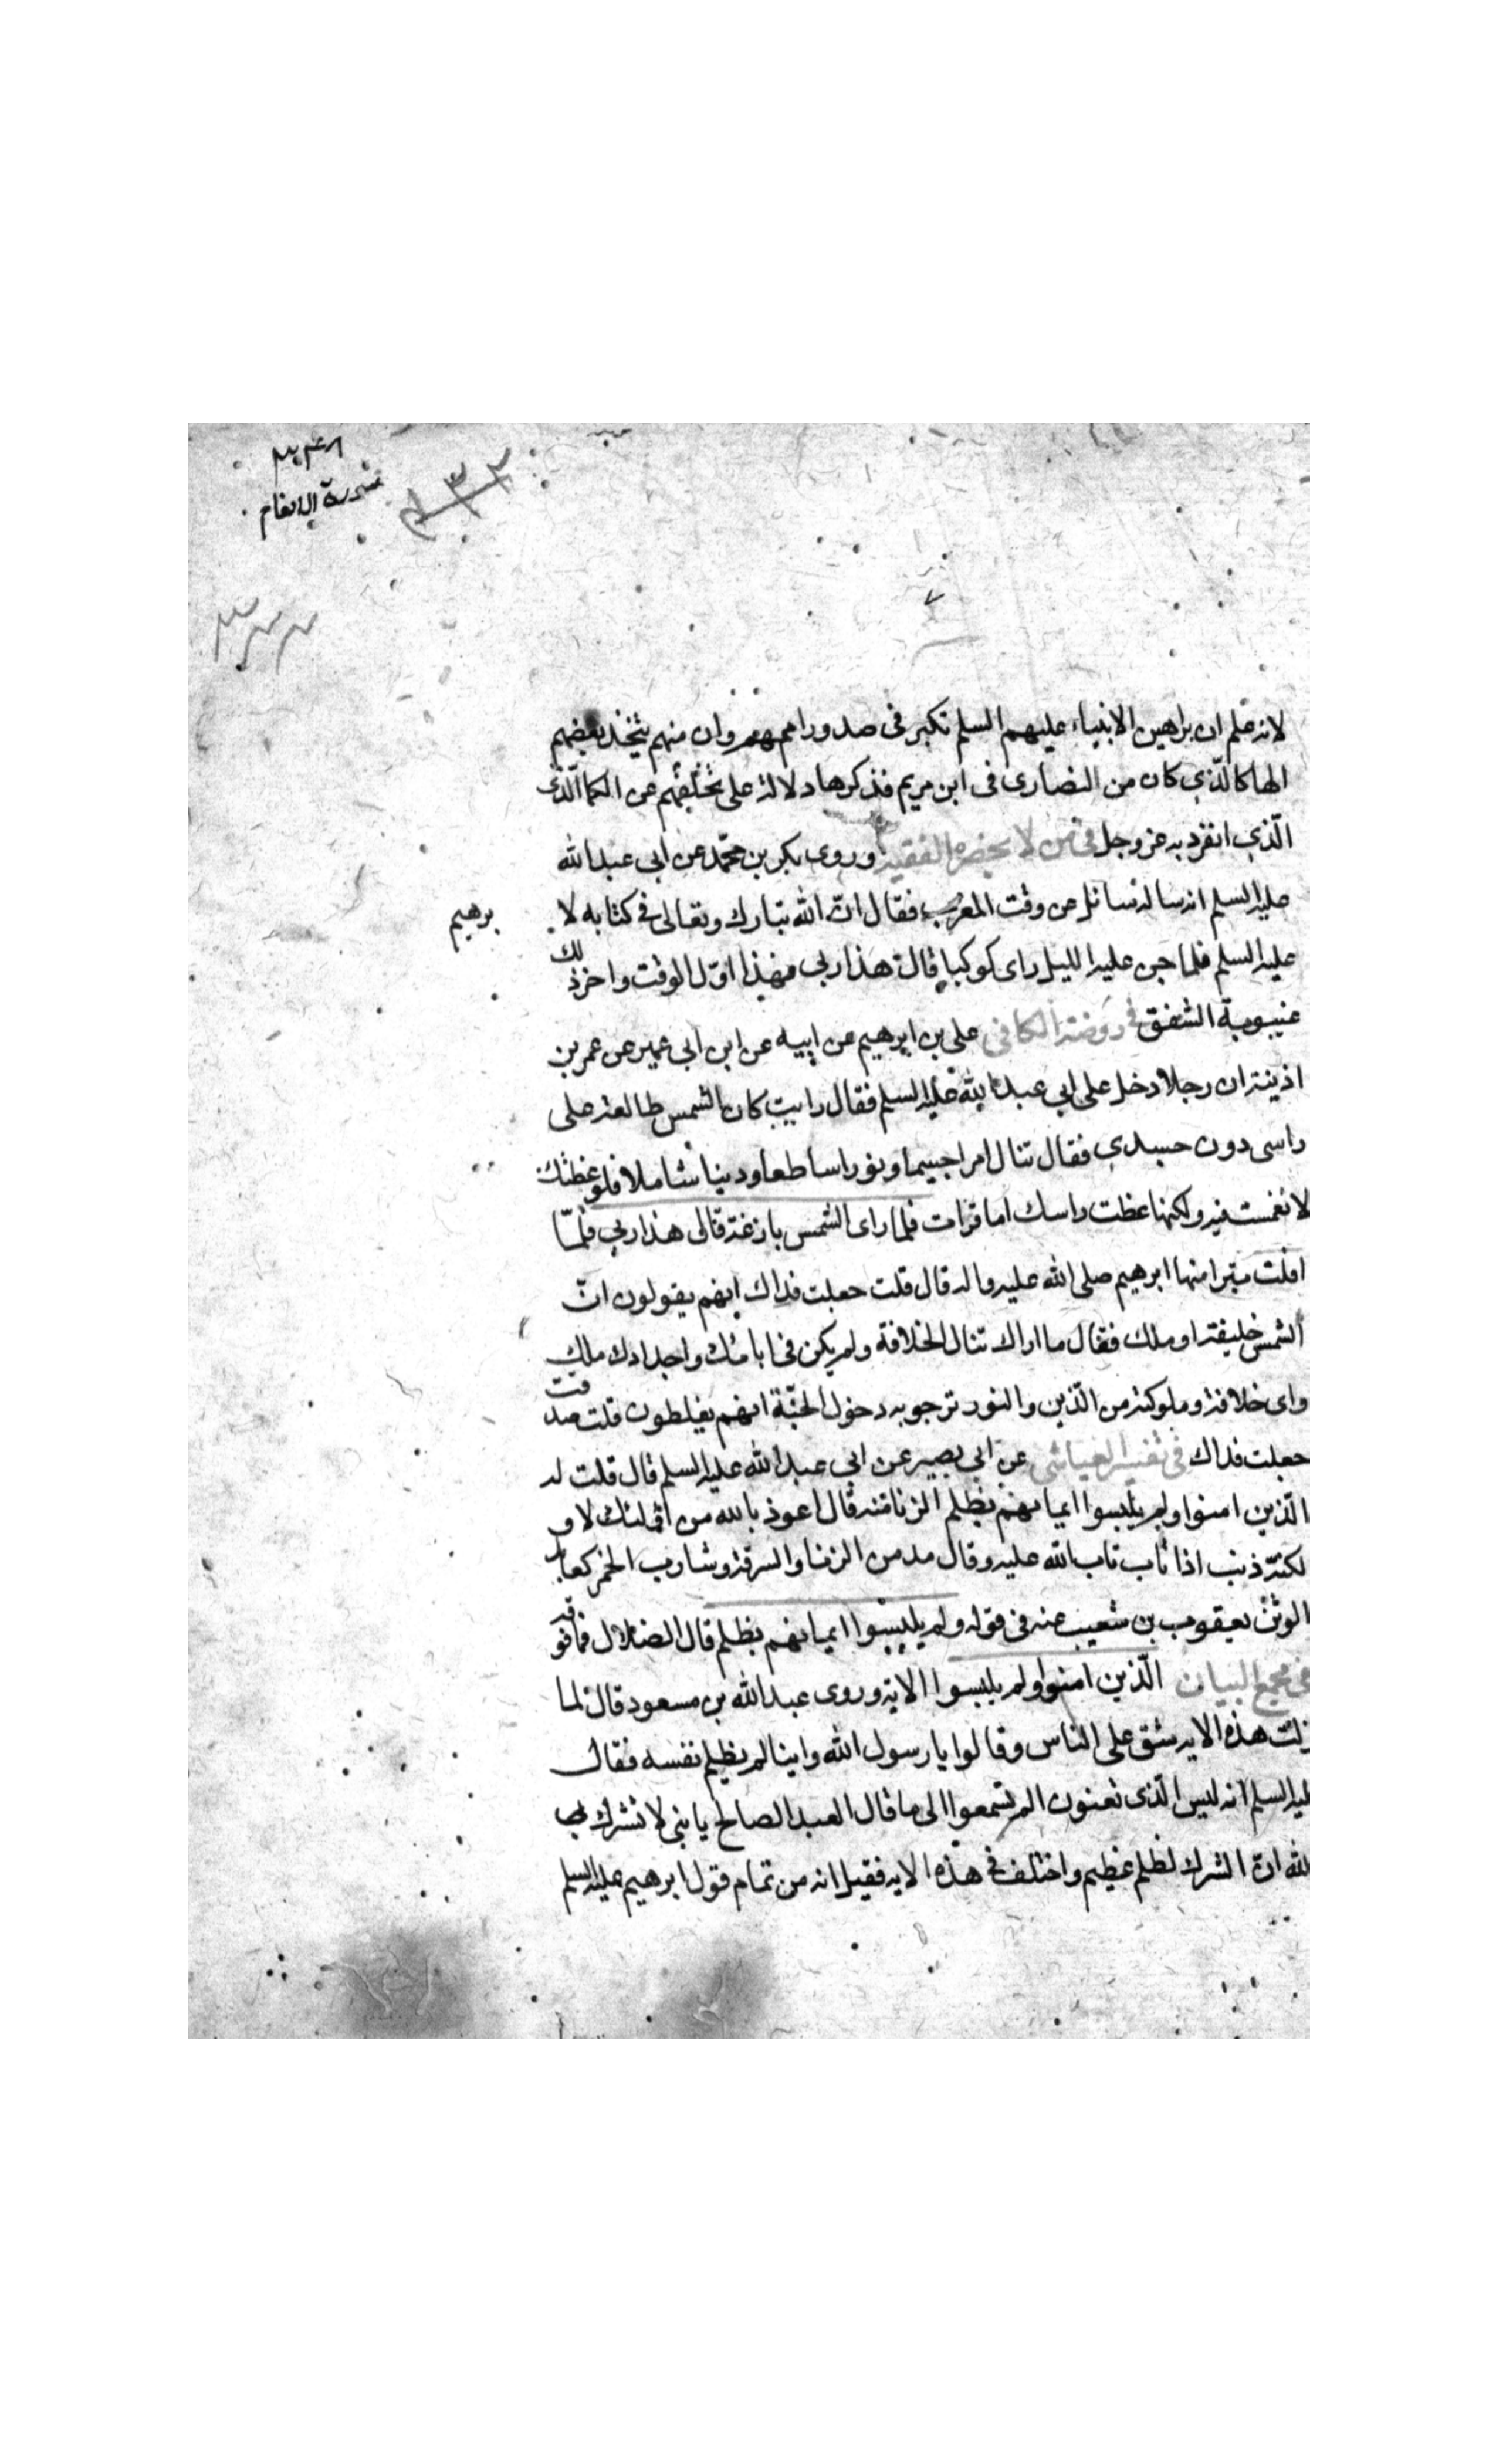 سورة الانعام
لانه علم ان براهين الانبياء عليهم السلم تكبر فى صدور اممهم وان منهم يتخذ بعضهم
الها كالذي كان من النصارى فى ابن مريم فذكرها دلالة على تخلفهم عن الكما الذى
الذي انفرد به عز وجل فى من لا يحضره الفقيه وروى بكر بن محمد عن ابى عبد الله
عليه السلم انه ساله سائل عن وقت المغرب فقال ان الله تبارك وتعالى فى كتابه لا
برهيم
عليه السلم فلما جن عليه الليل راى كوكبا قال هذا ربى فهذا اول الوقت واخر ذلك
غيبوبة الشفق فى روضة الكافى على بن ابرهيم عن ابيه عن ابن ابى عمير عن عمر بن
اذينة ان رجلا دخل على ابي عبد الله عليه السلم فقال رايت كان الشمس طالعة على
راسى دون جسدي فقال تنال امرا جسيما ونورا ساطعا ودينا شاملا فلو غطتك
لانغمست فيه ولكنها غطت راسك اما قرات فلما راى الشمس بازغة قال هذا ربي فلما
افلت تبرا منها ابرهيم صلى الله عليه واله قال قلت جعلت فداك انهم يقولون ان
الشمس خليفة او ملك فقال ما اراك تنال الخلافة ولم يكن فى ابائك واجدادك ملك
واى خلافة وملوكية من الدين والنور ترجو به دخول الجنة انهم يغلطون قلت صدقت
جعلت فداك فى تفسير العياشى عن ابى بصير عن ابي عبد الله عليه السلم قال قلت له
الذين امنوا ولم يلبسوا ايمانهم بظلم الزنا منه قال اعوذ بالله من اولئك لا و
لكنه ذنب اذا تاب تاب الله عليه وقال مدمن الزنا والسرقة وشارب الخمر كعابد
الوثن يعقوب بن شعيب عنه فى قوله ولم يلبسوا ايمانهم بظلم قال الضلال فما فوقه
فى مجمع البيان الذين امنوا ولم يلبسوا الاية وروى عبد الله بن مسعود قال لما
نزلت هذه الاية شق على الناس وقالوا يا رسول الله واينا لم يظلم نفسه فقال
عليه السلم انه ليس الذى تعنون الم تسمعوا الى ما قال العبد الصالح يا بنى لا تشرك با
لله ان الشرك لظلم عظيم واختلف فى هذه الاية فقيل انه من تمام قول ابرهيم عليه السلم